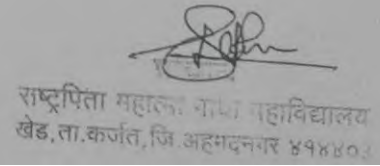 राष्ट्रपिता महात्मा गांधी महाविद्यालय
खेड, ता. कर्जत, जि. अहमदनगर ४१४४०३